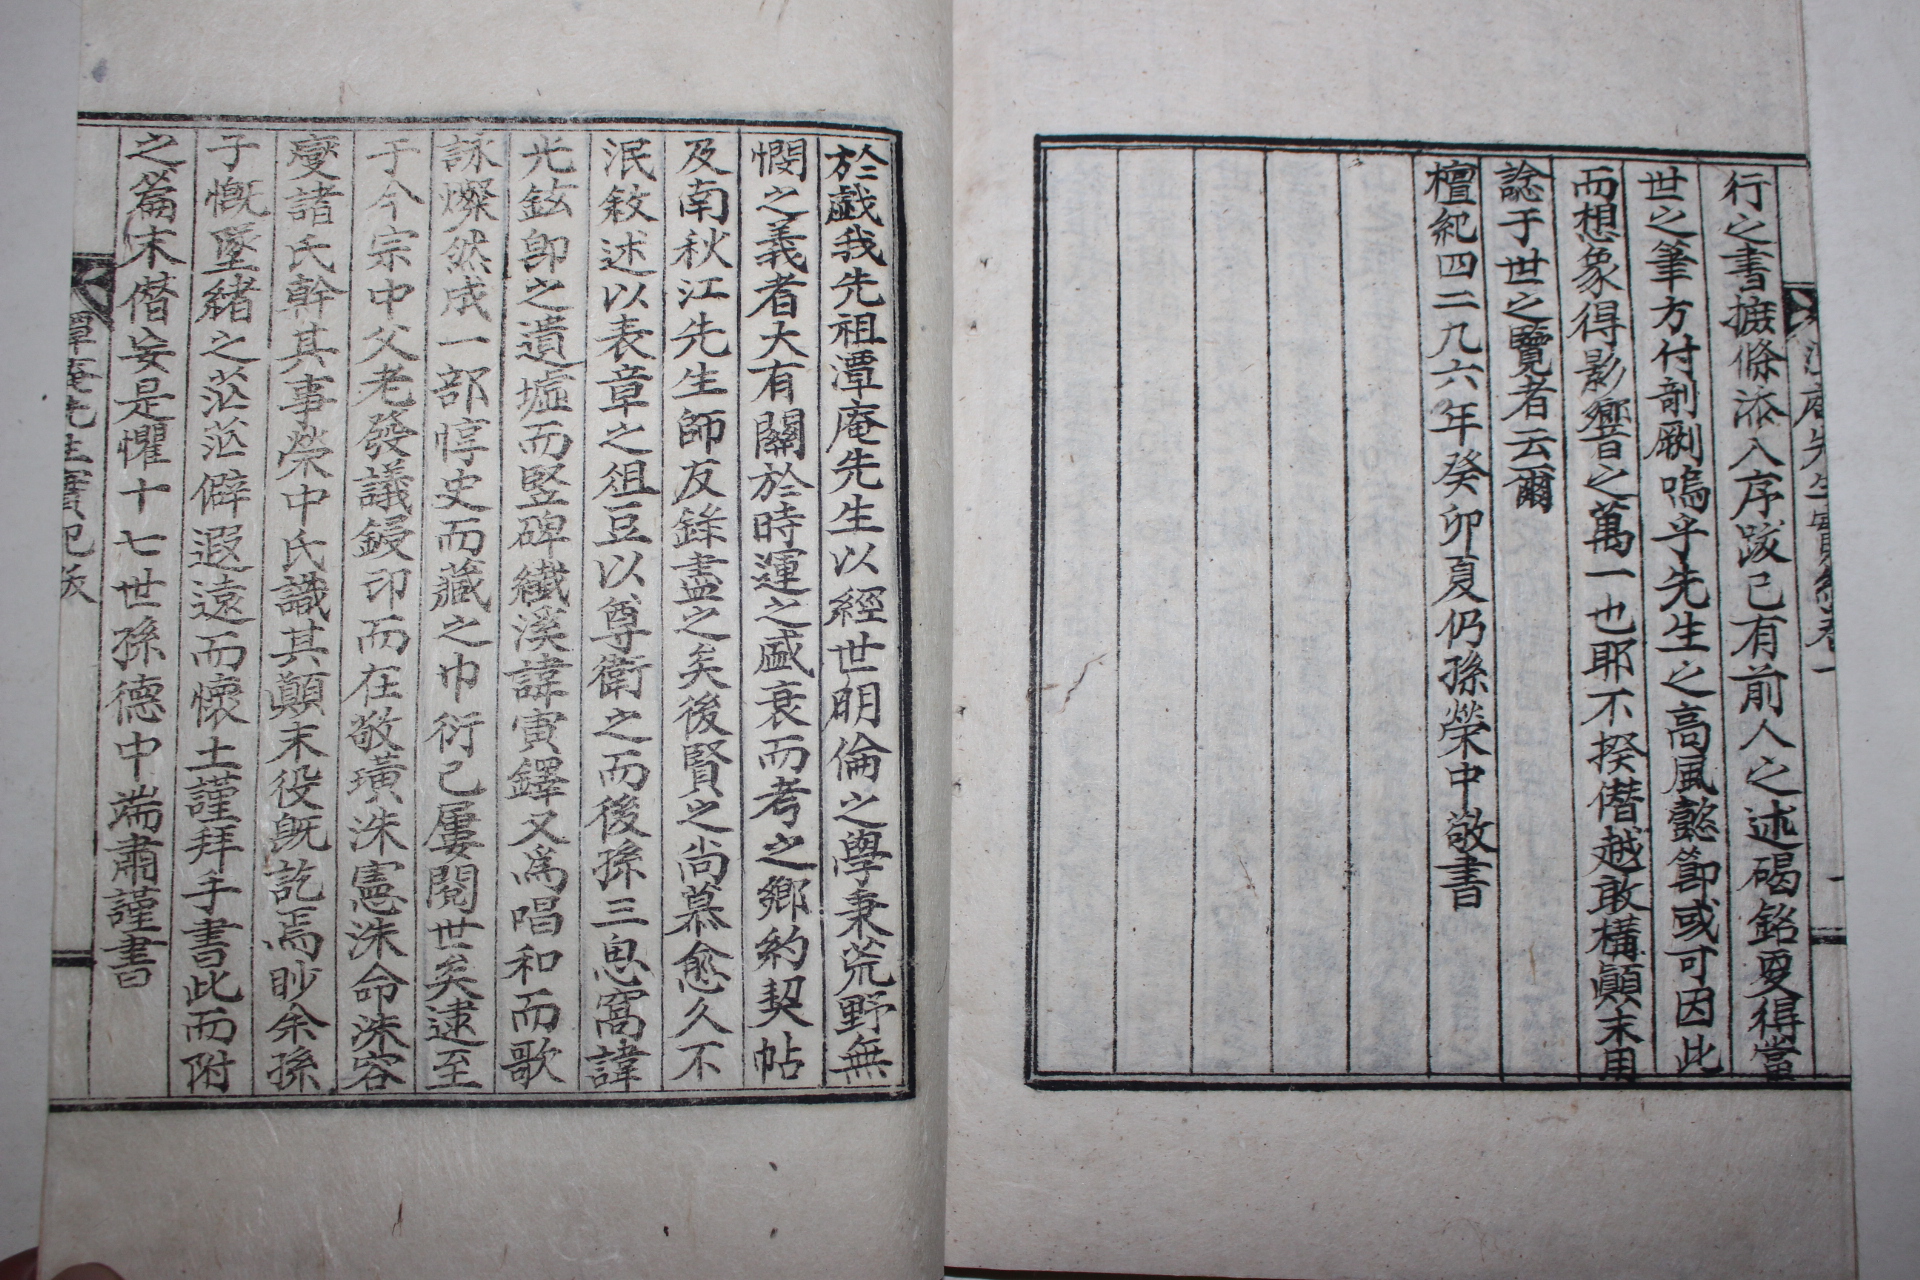 行之書摭條添入序跋已有前人之述碣銘要得當
世之筆方付剞劂嗚乎先生之高風懿節或可因此
而想象得影響之萬一也耶不揆僭越敢構顚末用
諗于世之覽者云爾
檀紀四二九六年癸卯夏仍孫榮中敬書
於戱我先祖潭庵先生以經世明倫之學秉荒野無
憫之義者大有關於時運之盛衰而考之鄕約契帖
及南秋江先生師友錄盡之矣後賢之尚慕愈久不
泯敘述以表章之俎豆以尊衛之而後孫三思窩諱
光鉉卽之遺墟而竪碑纖溪諱寅鐸又爲唱和而歌
詠燦然成一部惇史而藏之巾衍已屢閱世矣逮至
于今宗中父老發議鋟印而在敬璜洙憲洙命洙容
燮諸氏幹其事榮中氏識其顚末役旣訖焉眇余孫
子慨墜緖之茫茫僻遐遠而懷土謹拜手書此而附
之篇末僭妄是懼十七世孫德中端肅謹書
潭庵先生實紀